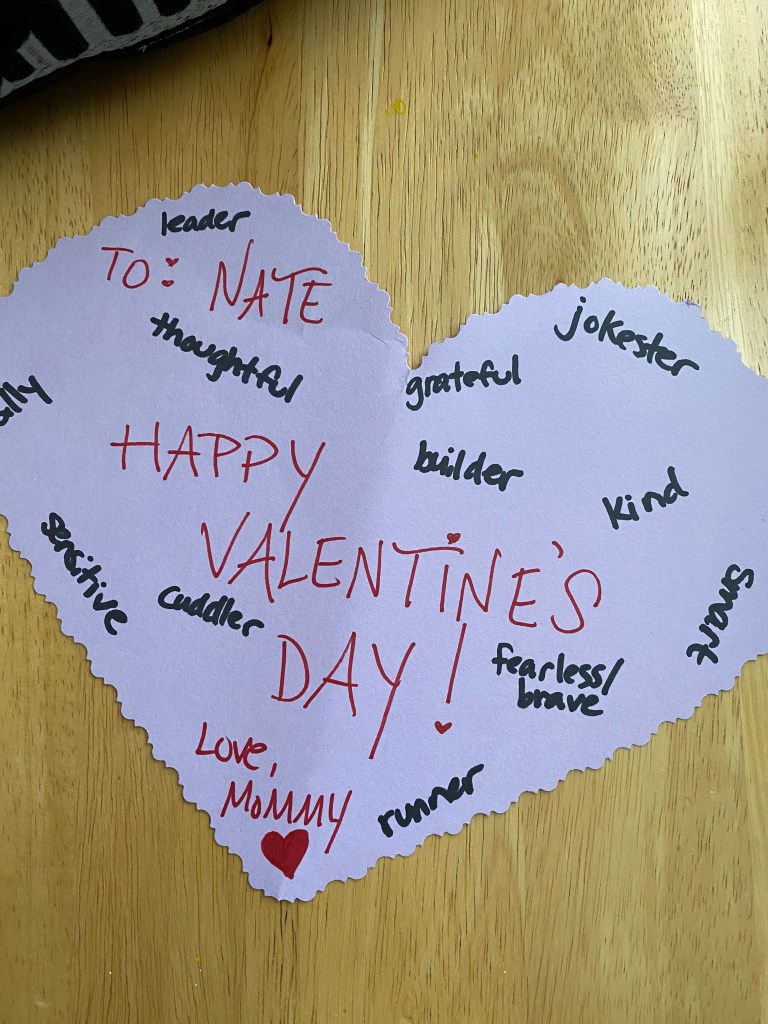 leader
TO: NATE
thoughtful
jokester
grateful
HAPPY
builder
kind
sensitive
VALENTINE'S
cuddler
smart
DAY!
fearless/
brave
Love,
MOMMY
runner